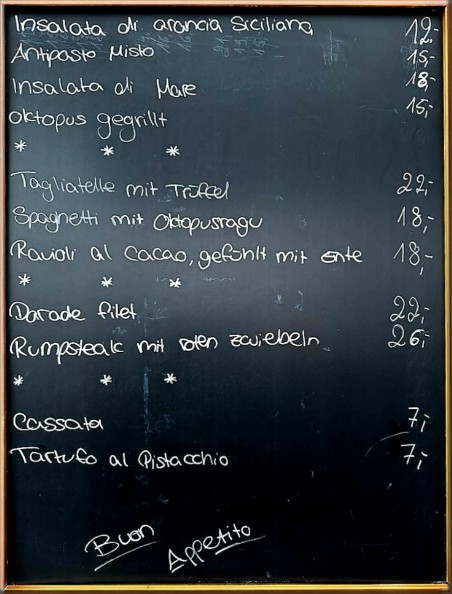 Insalata di arancia Siciliana 12,-
Antipasto Misto 15,-
Insalata di Mare 18,-
Oktopus gegrillt 15,-
* * *
Tagliatelle mit Trüffel 22,-
Spaghetti mit Oktopusragu 18,-
Ravioli al Cacao, gefühlt mit Ente 18,-
* * *
Dorade filet 22,-
Rumpsteak mit roten zwiebeln 26,-
* * *
Cassata 7,-
Tartufo al Pistacchio 7,-
Buon Appetito